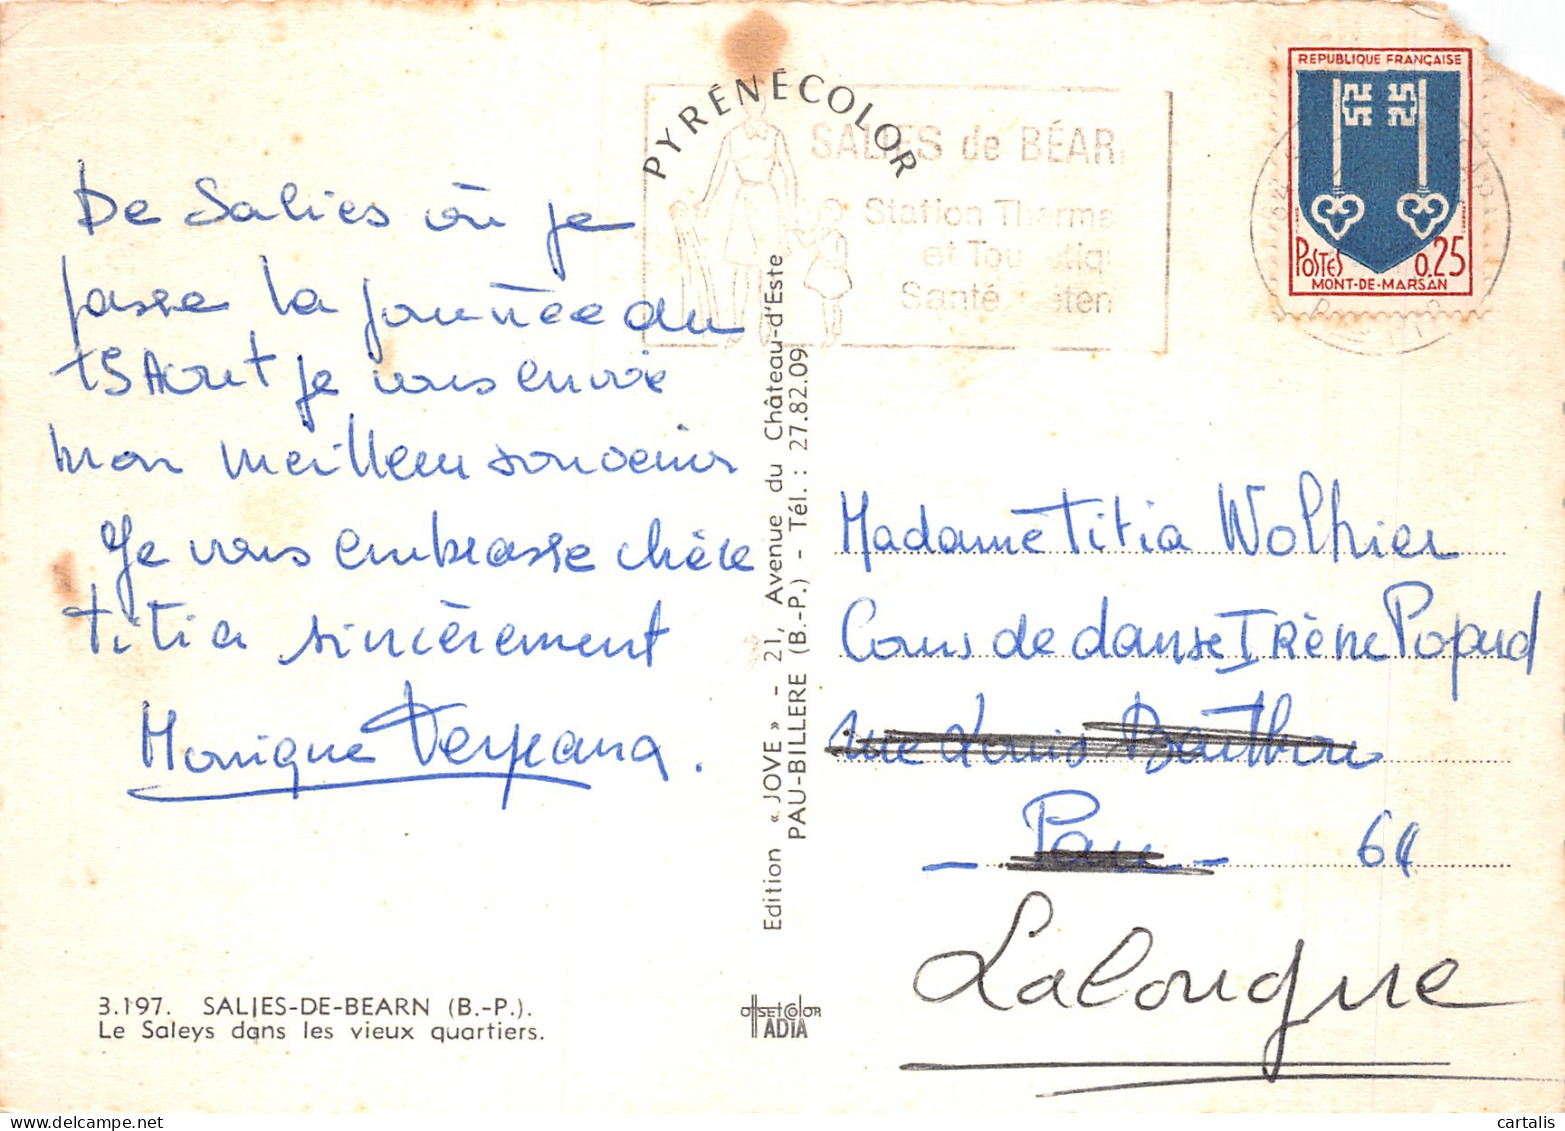 PYRÉNÉCOLOR
SALIES de BÉAR
Station Therma
et Tou
Santé
REPUBLIQUE FRANÇAISE
POSTES 0.25
MONT-DE-MARSAN
De Salies où je
passe la journée du
15 Aout je vous envoie
mon meilleur souvenir
Je vous embrasse chère
Titia sincèrement
Monique
Edition « JOVE » - 21, Avenue du Château-d'Este
PAU-BILLERE (B.-P.) - Tél. : 27.82.09
Madame Titia Wolhier
Cours de danse Irène Popard
rue Louis Barthou
- Pau - 64
Lalongue
3.197. SALIES-DE-BEARN (B.-P.).
Le Saleys dans les vieux quartiers.
OffSEtColOR
IADIA
www.delcampe.net
cartalis